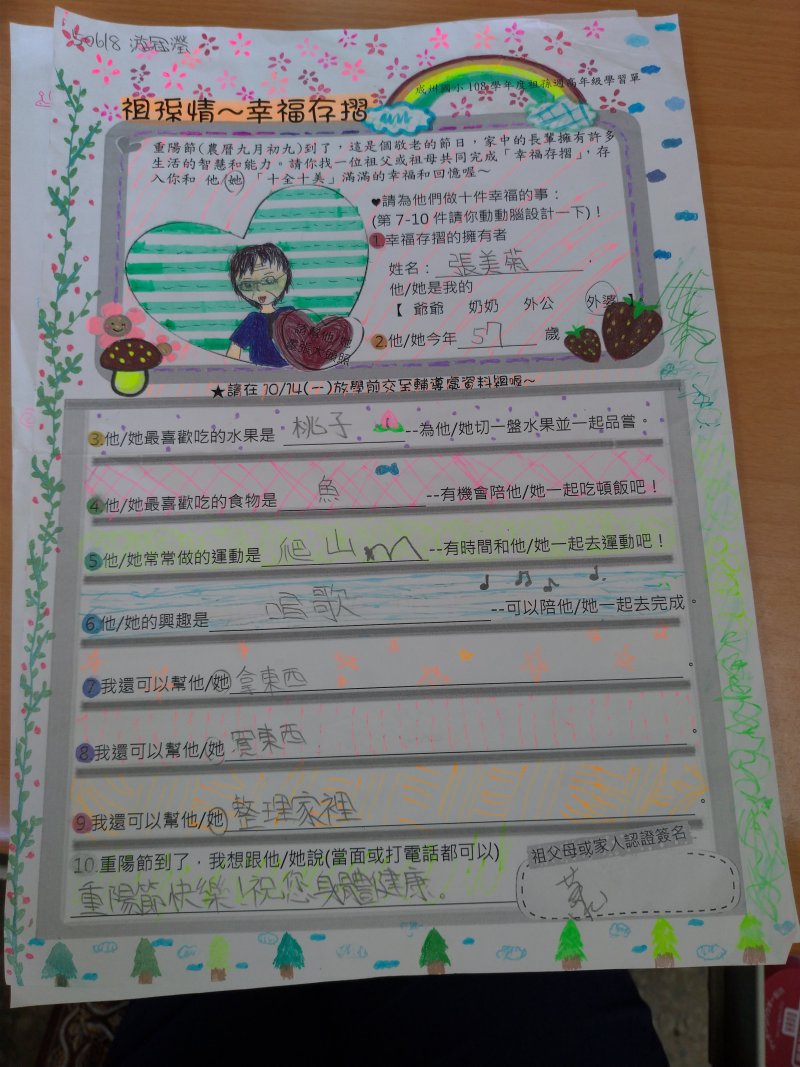 50618 游冠瀅
成州國小108學年度祖孫週高年級學習單
祖孫情～幸福存摺
重陽節(農曆九月初九)到了，這是個敬老的節日，家中的長輩擁有許多
生活的智慧和能力。請你找一位祖父或祖母共同完成「幸福存摺」，存
入你和 他/她 「十全十美」滿滿的幸福和回憶喔～
♥請為他們做十件幸福的事：
(第 7-10 件請你動動腦設計一下)！
1.幸福存摺的擁有者
姓名：張美菊
他/她是我的
【 爺爺 奶奶 外公 外婆 】
2.他/她今年 57 歲
★請在 10/14(一)放學前交至輔導處資料組喔～
3.他/她最喜歡吃的水果是 桃子 --為他/她切一盤水果並一起品嘗。
4.他/她最喜歡吃的食物是 魚 --有機會陪他/她一起吃頓飯吧！
5.他/她常常做的運動是 爬山 --有時間和他/她一起去運動吧！
6.他/她的興趣是 唱歌 --可以陪他/她一起去完成。
7.我還可以幫他/她 拿東西。
8.我還可以幫他/她 買東西。
9.我還可以幫他/她 整理家裡。
10.重陽節到了，我想跟他/她說(當面或打電話都可以)
重陽節快樂！祝您身體健康。
祖父母或家人認證簽名